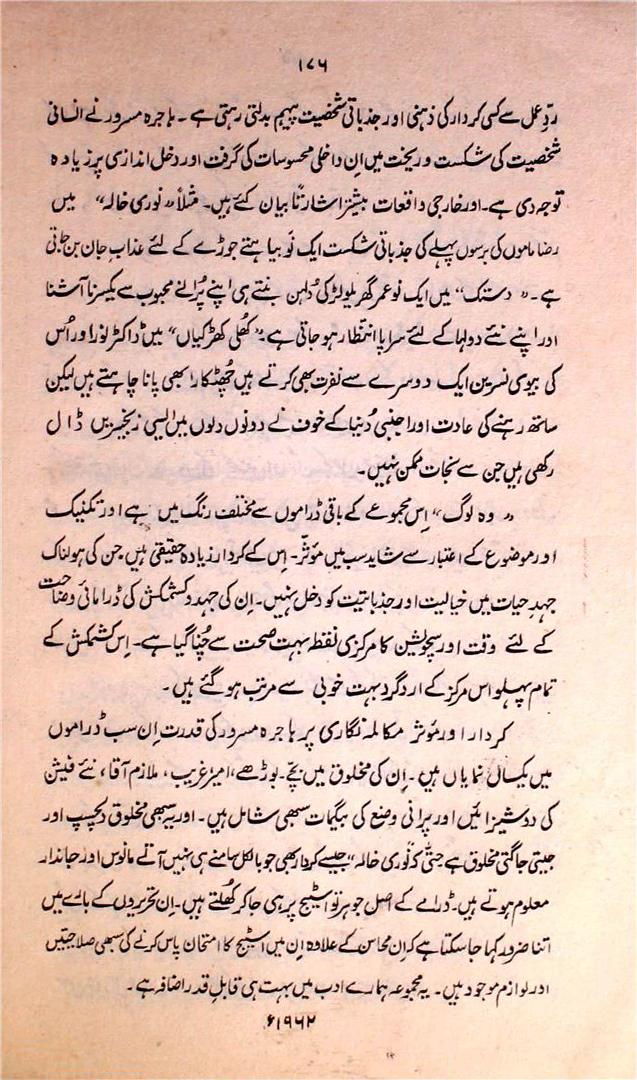 ۱۷۶
ردِّ عمل سے کسی کردار کی ذہنی اور جذباتی شخصیت پیہم بدلتی رہتی ہے ۔ ہاجرہ مسرور نے انسانی
شخصیت کی شکست و ریخت میں اِن داخلی محسوسات کی گرفت اور دخل اندازی پر زیادہ
توجہ دی ہے۔ اور خارجی واقعات بیشتر اشارتاً بیان کئے ہیں۔ مثلاً "نوری خالہ" میں
رضا ماموں کی برسوں پہلے کی جذباتی شکست ایک نو بیاہتے جوڑے کے لئے عذابِ جان بن جاتی
ہے۔ "دستک" میں ایک نو عمر گھریلو لڑکی دُلہن بنتے ہی اپنے پُرانے محبوب سے یکسر ناآشنا
اور اپنے نئے دولہا کے لئے سراپا انتظار ہو جاتی ہے۔ "کھلی کھڑکیاں" میں ڈاکٹر نورا اور اُس
کی بیوی نسرین ایک دوسرے سے نفرت بھی کرتے ہیں چُھٹکارا بھی پانا چاہتے ہیں لیکن
ساتھ رہنے کی عادت اور اجنبی دُنیا کے خوف نے دونوں دلوں میں ایسی زنجیریں ڈال
رکھی ہیں جن سے نجات ممکن نہیں۔
"وہ لوگ" اِس مجموعے کے باقی ڈراموں سے مختلف رنگ میں ہے اور تکنیک
اور موضوع کے اعتبار سے شاید سب میں مؤثر۔ اِس کے کردار زیادہ حقیقی ہیں جن کی ہولناک
جہدِ حیات میں خیالیت اور جذباتیت کو دخل نہیں۔ اِن کی جہد و کشمکش کی ڈرامائی وضاحت
کے لئے وقت اور سچویشن کا مرکزی نقطہ بہت صحت سے چُنا گیا ہے۔ اِس کشمکش کے
تمام پہلو اس مرکز کے اردگرد بہت خوبی سے مرتب ہو گئے ہیں۔
کردار اور مؤثر مکالمہ نگاری پر ہاجرہ مسرور کی قدرت اِن سب ڈراموں
میں یکساں نمایاں ہیں۔ اِن کی مخلوق میں بچے۔ بوڑھے، امیر غریب، ملازم آقا، نئے فیشن
کی دوشیزائیں اور پرانی وضع کی بیگمات سبھی شامل ہیں۔ اور یہ سبھی مخلوق دلچسپ اور
جیتی جاگتی مخلوق ہے حتّٰی کہ "نوری خالہ" جیسے کردار بھی جو بالکل سامنے ہی نہیں آتے مانوس اور جاندار
معلوم ہوتے ہیں۔ ڈرامے کے اصل جوہر تو اسٹیج پر ہی جا کر کُھلتے ہیں۔ اِن تحریروں کے بارے میں
اتنا ضرور کہا جا سکتا ہے کہ اِن محاسن کے علاوہ اِن میں اسٹیج کا امتحان پاس کرنے کی سبھی صلاحیتیں
اور لوازم موجود ہیں۔ یہ مجموعہ ہمارے ادب میں بہت ہی قابلِ قدر اضافہ ہے۔
۱۹۶۲ء